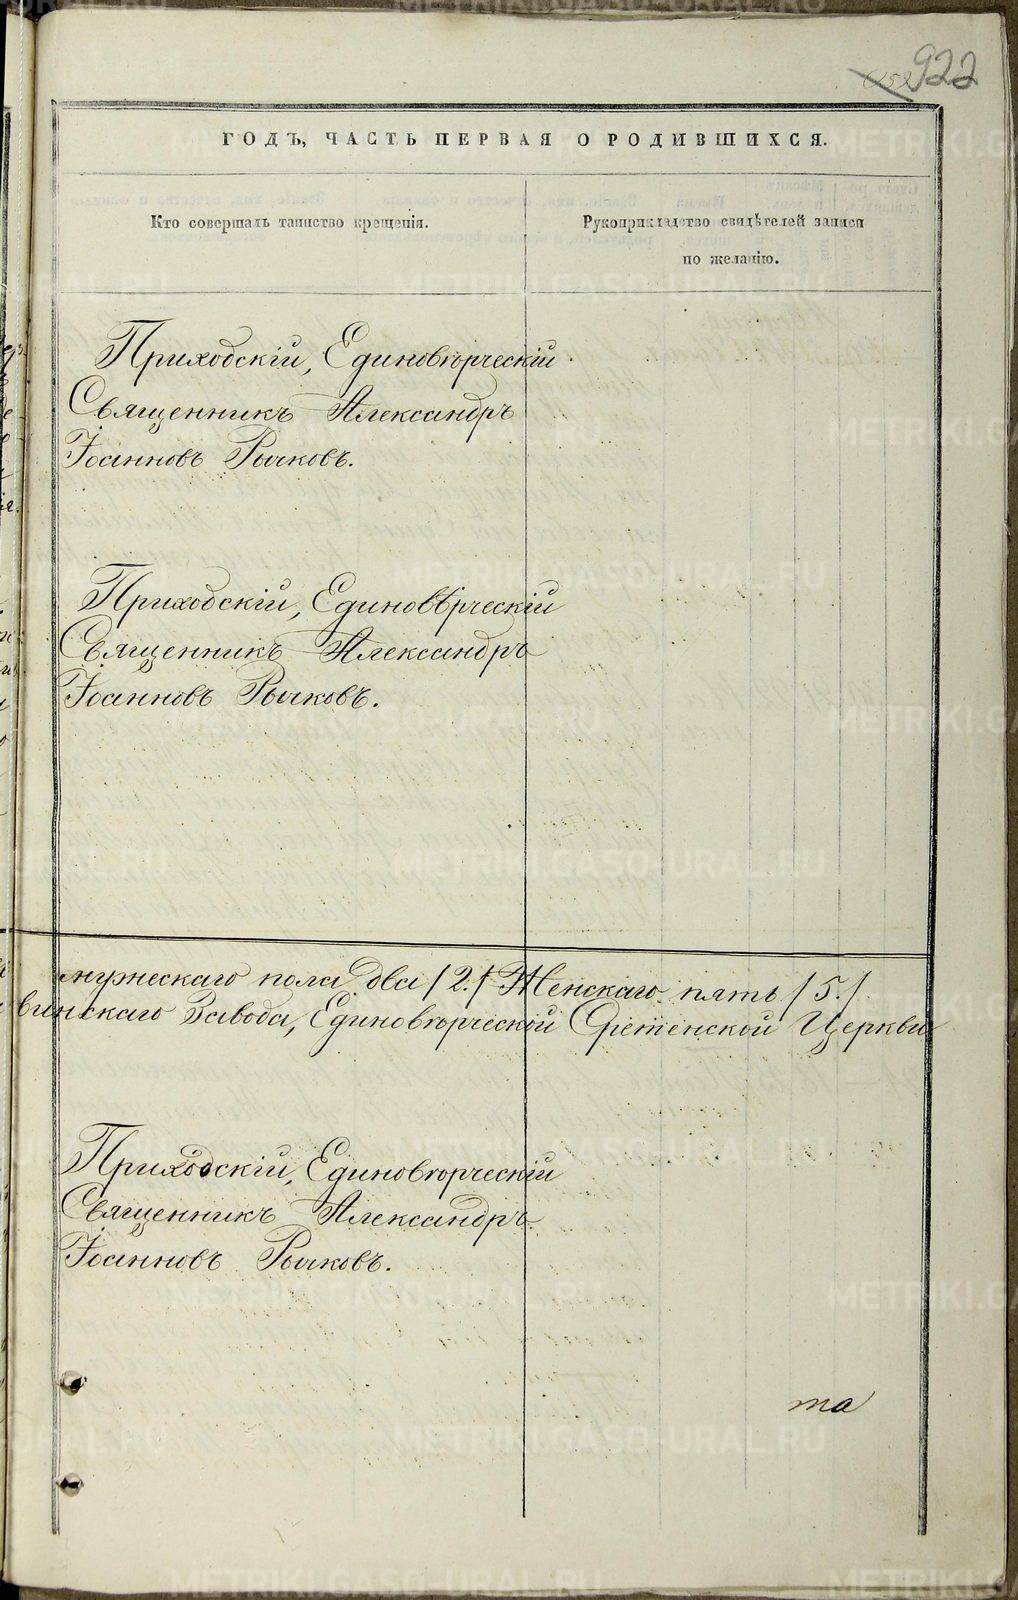 922
ГОДЪ, ЧАСТЬ ПЕРВАЯ О РОДИВШИХСЯ.
Кто совершалъ таинство крещенія.
Рукоприкладство свидѣтелей записи
по желанію.
Приходскій, Единовѣрческій
Священникъ Александръ
Іоанновъ Рычковъ.
Приходскій, Единовѣрческій
Священникъ Александръ
Іоанновъ Рычковъ.
мужескаго пола два /2./ Женскаго пять /5./
винскаго Завода, Единовѣрческой Срѣтенской Церкви
Приходскій, Единовѣрческій
Священникъ Александръ
Іоанновъ Рычковъ.
та
METRIKI.GASO-URAL.RU